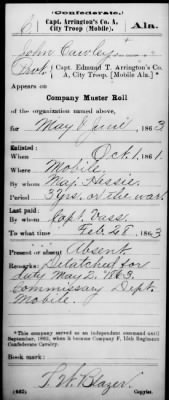 (Confederate.)
C Capt. Arrington's Co. A, City Troop (Mobile) Ala.
John Cawley
Pvt Capt. Edmund T. Arrington's Co. A, City Troop [Mobile Ala.]
Appears on
Company Muster Roll
of the organization named above,
for May & June, 1863
Enlisted:
When Oct. 1, 1861
Where Mobile
By whom Maj. Hessie
Period 3 yrs. or the war
Last paid:
By whom Capt. Vass
To what time Feb 28, 1863
Present or absent Absent
Remarks: Detatched for
duty May 2, 1863.
Commissary Dept.
Mobile.
*This company served as an independent command until
September, 1863, when it became Company F, 15th Regiment
Confederate Cavalry.
Book mark:
S. W. Blazer
(642) Copyist.